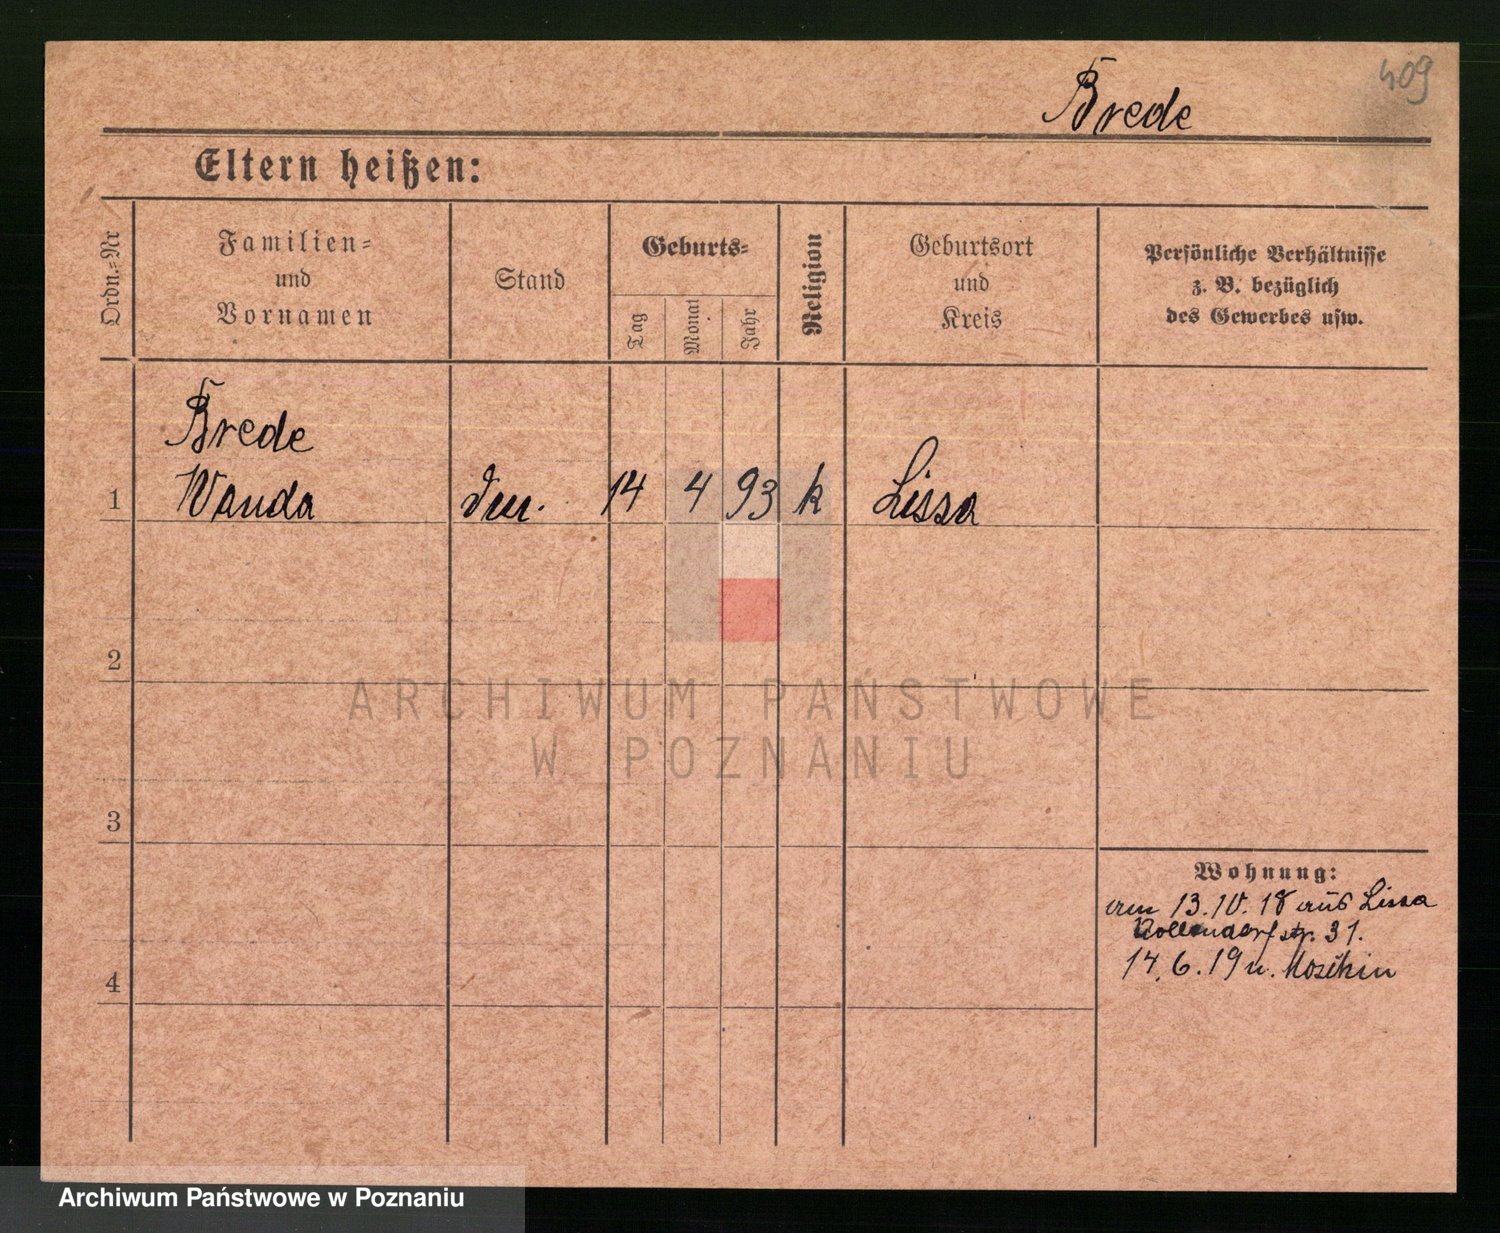 409
Brede
Eltern heißen:
Ordn.=Nr
Familien=
und
Vornamen
Stand
Geburts=
Tag
Monat
Jahr
Religion
Geburtsort
und
Kreis
Persönliche Verhältnisse
z. B. bezüglich
des Gewerbes usw.
Brede
1 Wanda 14 4 93 k Lissa
2
3
4
Wohnung:
am 13. IV. 18 aus Lissa
str. 31.
14. 6. 19 n.
ARCHIWUM PAŃSTWOWE
W POZNANIU
Archiwum Państwowe w Poznaniu